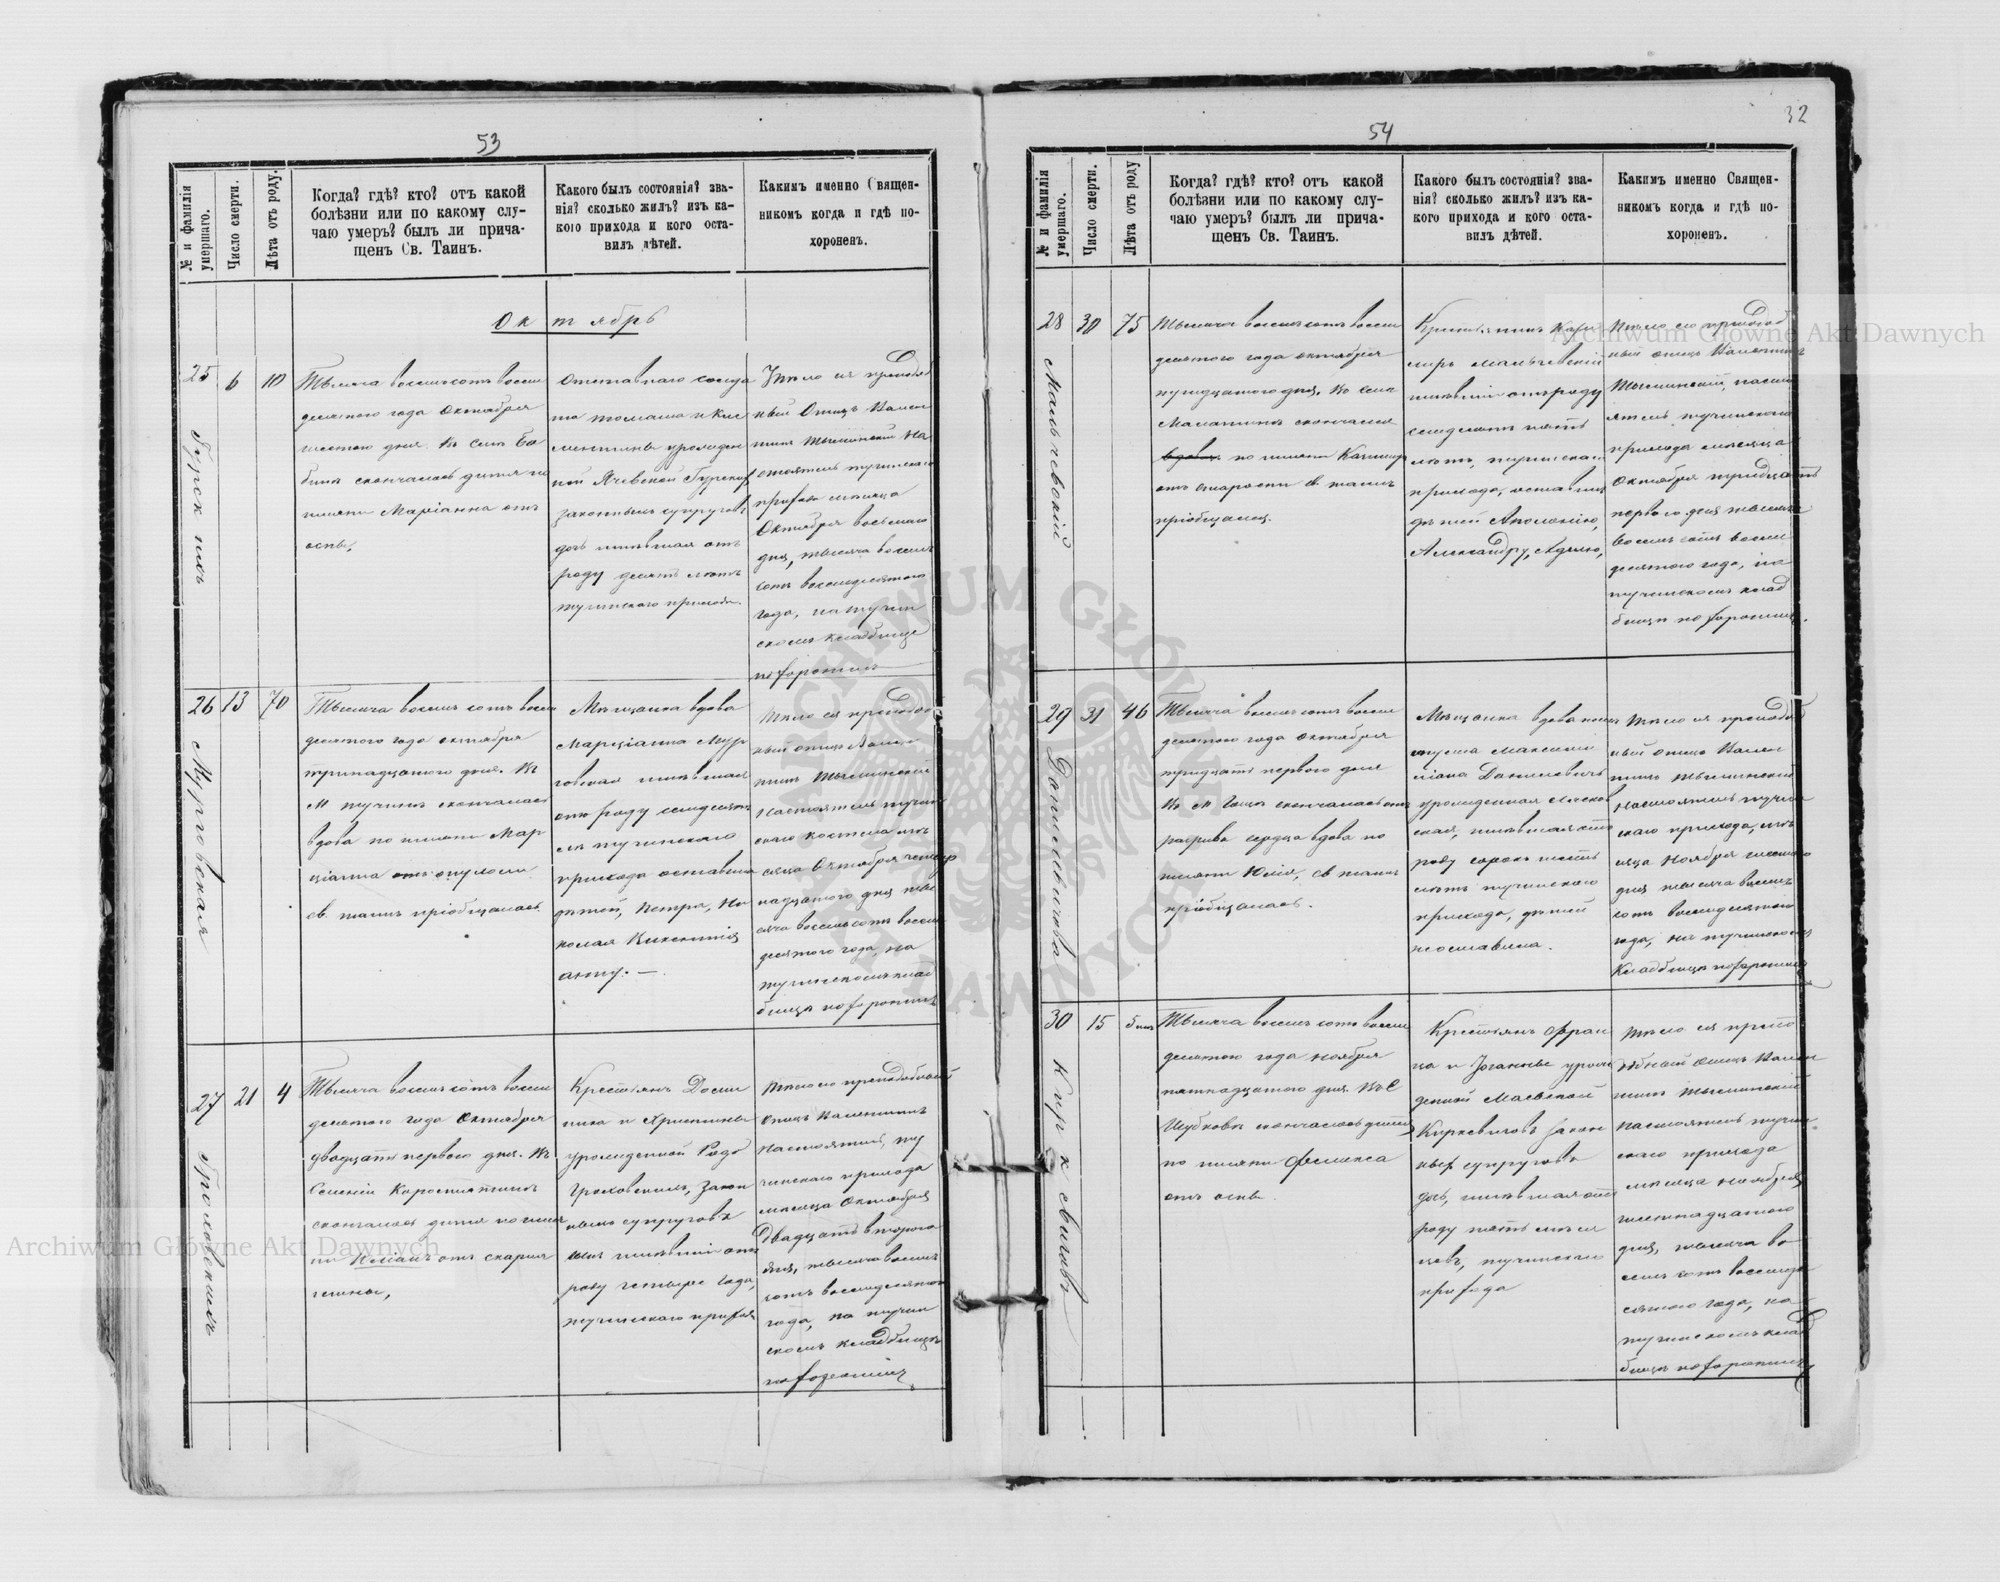 53
№ и фамилія умершаго.
Число смерти.
Лѣта отъ роду.
Когда? гдѣ? кто? отъ какой
болѣзни или по какому слу-
чаю умеръ? былъ ли прича-
щенъ Св. Таинъ.
Какого былъ состоянія? зва-
нія? сколько жилъ? изъ ка-
кого прихода и кого оста-
вилъ дѣтей.
Какимъ именно Священ-
никомъ когда и гдѣ по-
хороненъ.
Октябрь
25
6
10
Гурскихъ
Тысяча восемьсотъ восем
десятого года Октября
шестого дня. Въ Селѣ Ба
бинѣ скончалось дитя по
имени Маріанна отъ
оспы,
Отставнаго солда
та Томаша и Кле
ментины урожден
ной Ячевской Гурскихъ
законныхъ супруговъ
дочь имѣвшая отъ
роду десять лѣтъ
тучинского прихода.
Тѣло ея преподоб
ный Отецъ Вален
тинъ Тыминскій На
стоятель тучинскаго
прихода мѣсяца
Октября восьмаго
дня, тысяча восемь
сотъ восемдесятого
года, на тучин
скомъ кладбище
похоронилъ
26
13
70
Мурговская
Тысяча восемь сотъ восем
десятого года октября
тринадцатого дня. Въ
М Тучинѣ скончалась
вдова по имени Мар
ціанна отъ опухоли
св. таинъ пріобщалась
Мѣщанка вдова
Марціанна Мур
говская имѣвшая
отъ роду семдесятъ
лѣ тучинскаго
прихода оставила
дѣтей, Петра, Ни
колая Викентія
анну. —
Тѣло ея преподоб
ный отецъ Вален
тинъ Тыминскій
Настоятель тучин
скаго костела мѣ
сяца Октября четыр
надцатого дня ты
сяча восемьсотъ восем
десятого года, на
тучинскомъ клад
бищѣ похоронилъ
27
21
4
Гроховскихъ
Тысяча восемь сотъ восем
десятого года Октября
двадцать первого дня. Въ
Селеніи Коростятинѣ
скончалось дитя по име
ни Юліанъ отъ скарля
тины,
Крестьянъ Доми
ника и Христины
урожденной Родо
Гроховскихъ, закон
ныхъ супруговъ
сынъ имѣвшій отъ
роду четыре года,
тучинскаго прихода
Тѣло его преподобный
Отецъ Валентинъ
Настоятель ту
чинскаго прихода
мѣсяца Октября
Двадцать второго
дня, тысяча восемь
сотъ восемдесятого
года, на тучин
скомъ кладбищѣ
похоронилъ
32
54
№ и фамилія умершаго.
Число смерти.
Лѣта отъ роду
Когда? гдѣ? кто? отъ какой
болѣзни или по какому слу-
чаю умеръ? былъ ли прича-
щенъ Св. Таинъ.
Какого былъ состоянія? зва-
нія? сколько жилъ? изъ ка-
кого прихода и кого оста-
вилъ дѣтей.
Какимъ именно Священ-
никомъ когда и гдѣ по-
хороненъ.
28
30
75
Мальчевскій
Тысяча восемь сотъ восем
десятого года октября
тридцатого дня. Въ Селѣ
Малатинѣ скончался
вдовец по имени Казимиръ
отъ старости св. таинъ
пріобщался.
Крестьянинъ Кази
миръ Мальчевскій
имѣвшій отъ роду
семдесятъ пять
лѣтъ, тучинскаго
прихода, оставилъ
дѣтей Аполонію,
Александру, Адель,
Тѣло его преподоб
ный отецъ Валентинъ
Тыминскій, насто
ятель тучинского
прихода мѣсяца
Октября тридцать
первого дня тысяча
восемь сотъ восем
десятого года, на
тучинскомъ клад
бищѣ похоронилъ.
29
31
46
Данилевичова
Тысяча восемь сотъ восем
десятого года Октября
тридцать первого дня
Въ М Гощѣ скончалась отъ
разрыва сердца вдова по
имени Юлія, св. таинъ
пріобщалась.
Мѣщанка вдова
мужа Максими
ліана Даниловичъ
урожденная Лясков
ская, имѣвшая отъ
роду сорокъ шесть
лѣтъ тучинского
прихода, дѣтей
неоставила.
Тѣло ея преподоб
ный отецъ Вален
тинъ Тыминскій
Настоятель тучин
скаго прихода, мѣ
сяца Ноября
дня тысяча восемь
сотъ восемдесятого
года, на тучинскомъ
Кладбищѣ похоронилъ
30
15
5 мѣс
Киркевичовъ
Тысяча восемь сотъ восем
десятого года Ноября
пятнадцатого дня. Въ С
Шубковѣ скончалось дитя
по имени Фелиция
отъ оспы.
Крестьянъ Фран
ца и Іоганны урож
денной Маевской
Киркевичовъ закон
ныхъ супруговъ
дочь, имѣвшая отъ
роду пять мѣся
цевъ, тучинскаго
прихода
Тѣло ея препо
добный отецъ Вален
тинъ Тыминскій
Настоятель тучин-
скаго прихода
мѣсяца Ноября,
шестнадцатого
дня, тысяча во
семь сотъ восемде
сятого года, на
тучинскомъ клад
бищѣ похоронилъ
Archiwum Główne Akt Dawnych
Archiwum Główne Akt Dawnych
ARCHIWUM GŁÓWNE AKT DAWNYCH